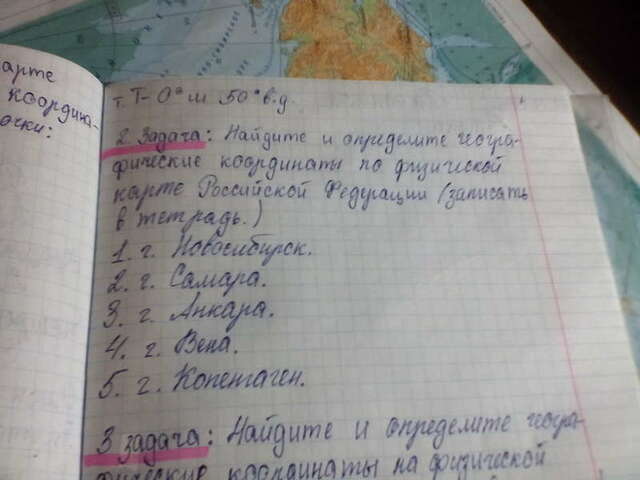 арте
координа-
очки:
т. Т- 0° ш 50° в.д.
2 Задача: Найдите и определите геогра-
фические координаты по физической
карте Российской Федурации (записать
в тетрадь.)
1. г. Новосибирск.
2. г. Самара.
3. г. Анкара.
4. г. Вена.
5. г. Копенгаген.
3 задача: Найдите и определите геогра-
фические координаты на физической